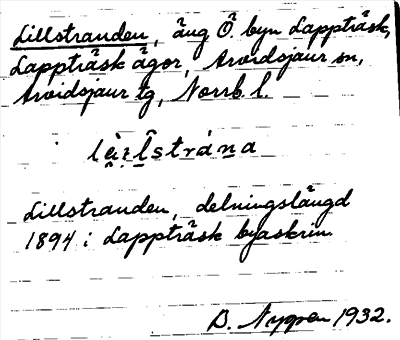 Lillstranden, äng Ö. byn Lappträsk,
Lappträsk ägor, Arvidsjaur sn,
Arvidsjaur tg, Norrb. l.
Lillstranden, delningslängd
1894 i Lappträsk byaskrin.
B. Nygren 1932.